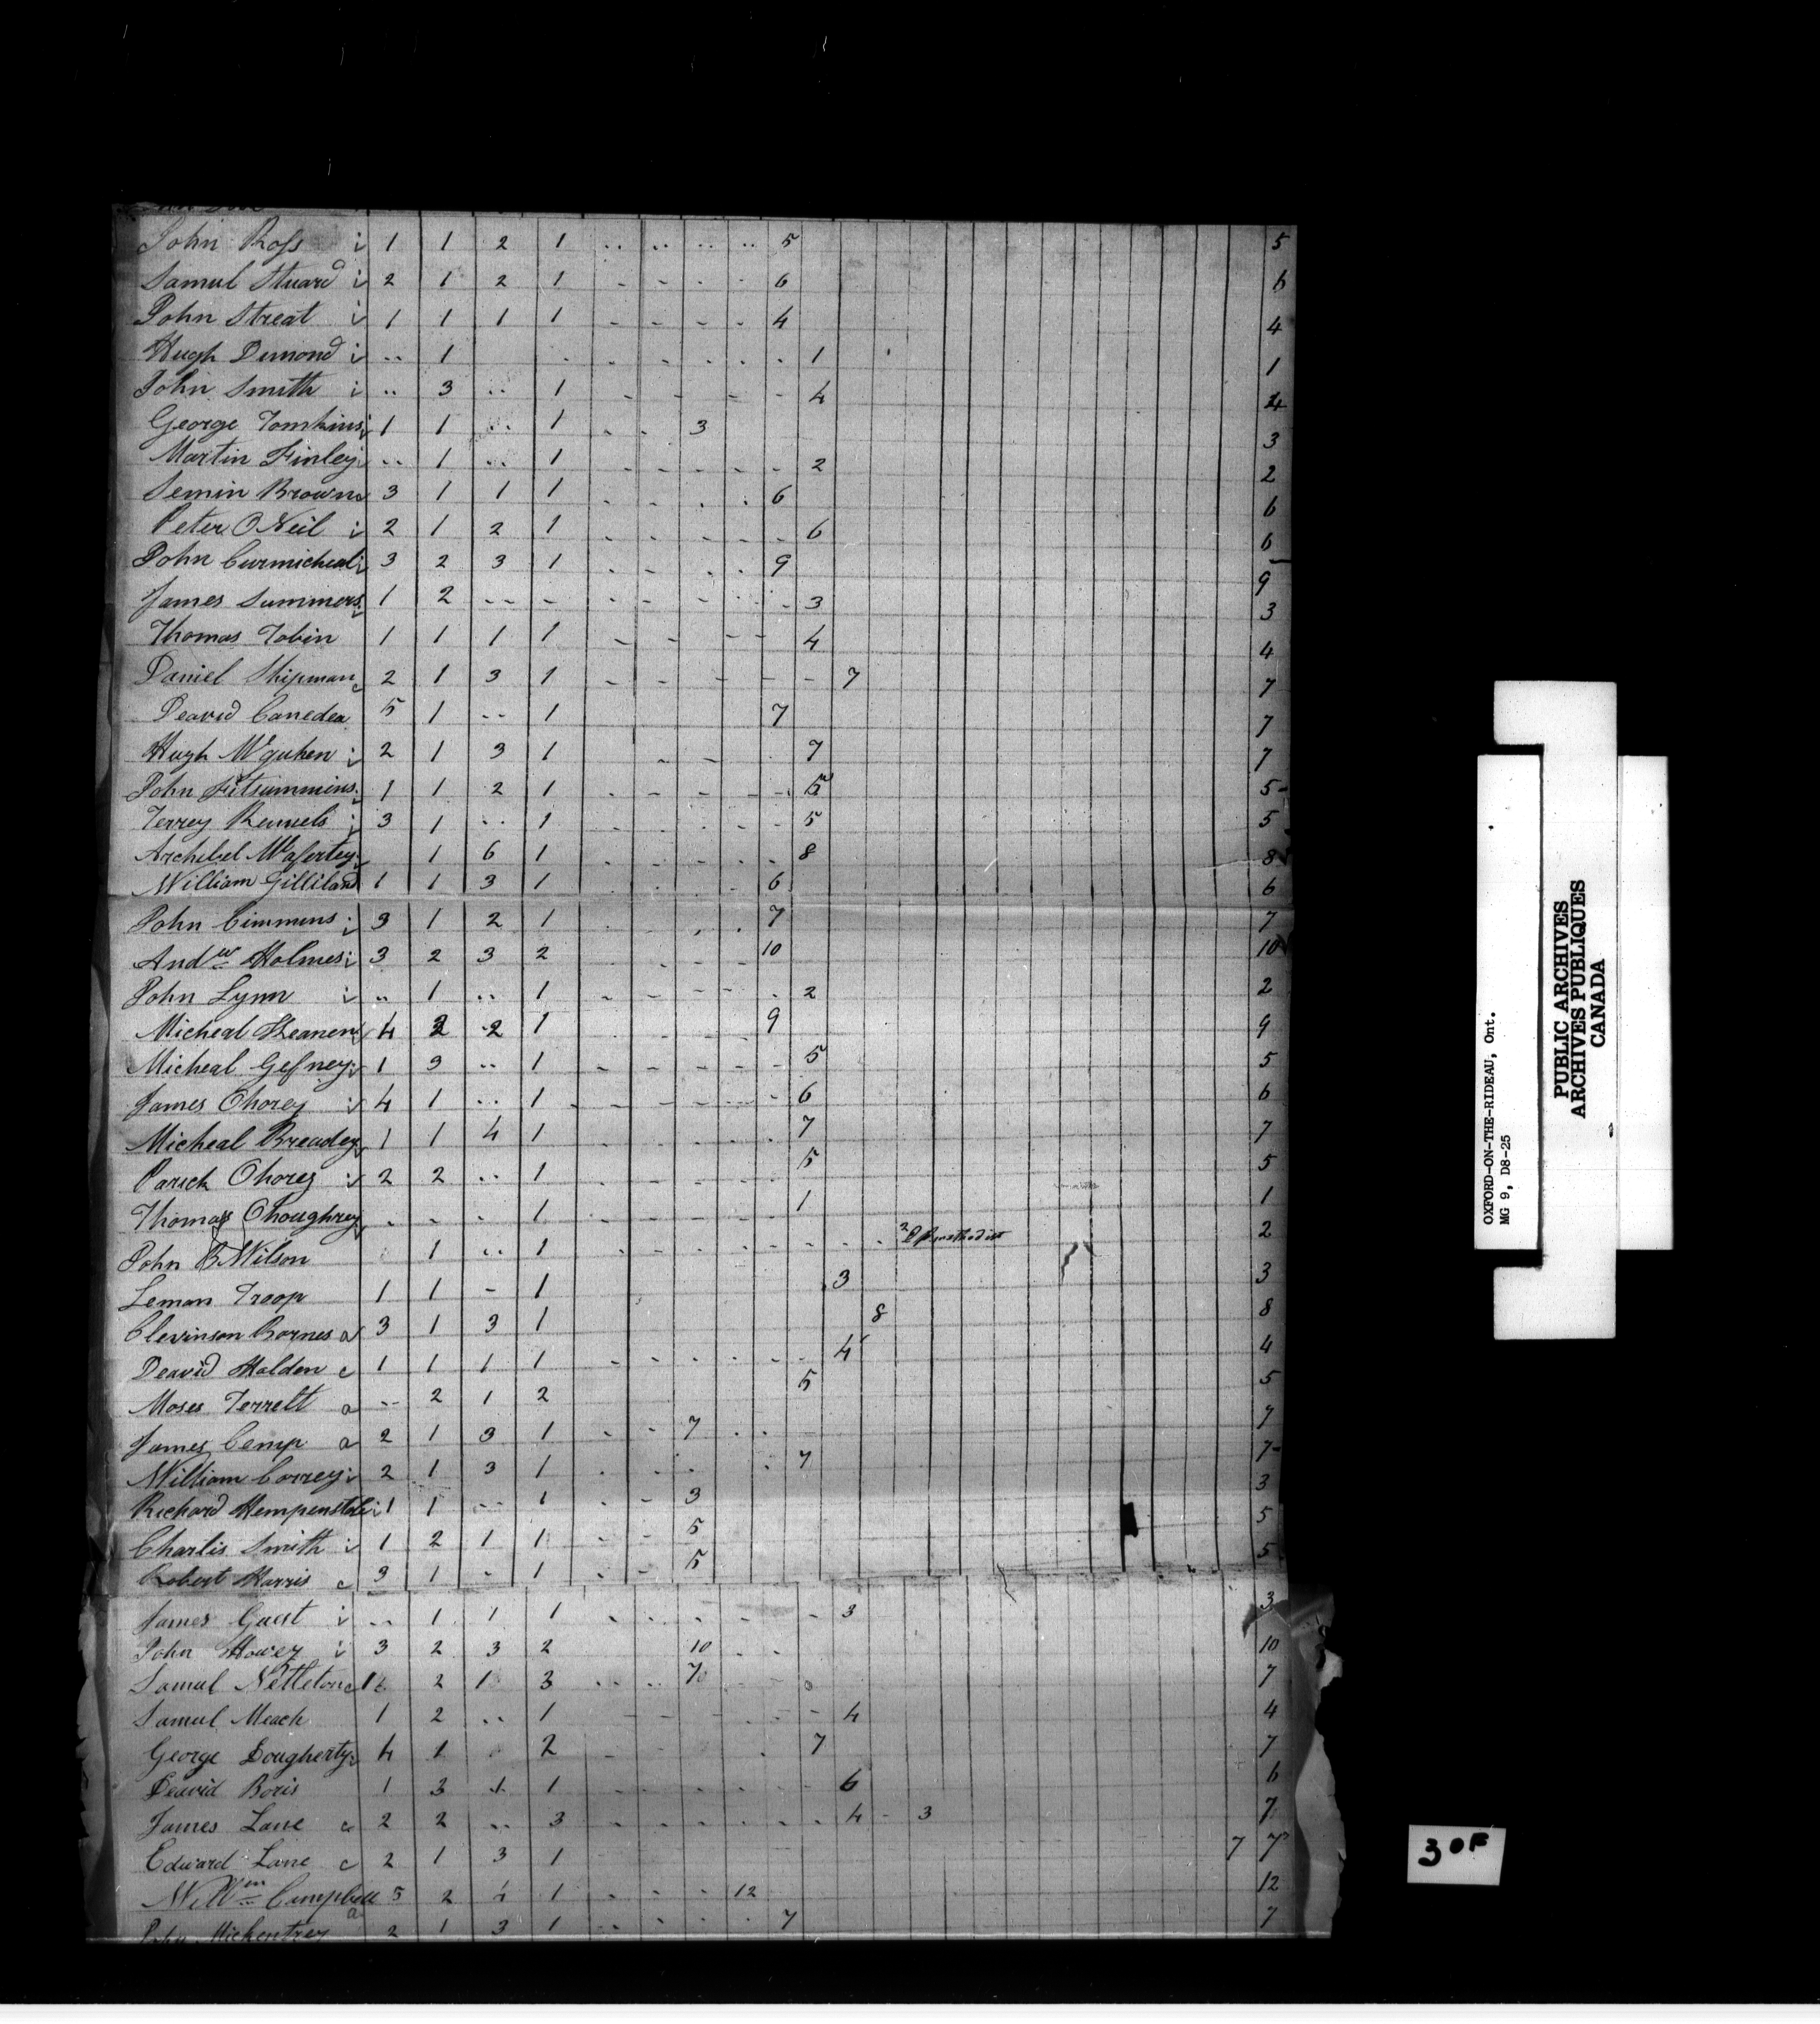 John Ross i 1 1 2 1 .. .. .. .. 5 5
Samul Stuard i 2 1 2 1 - - - - 6 6
John Streat i 1 1 1 1 - - - - 4 4
Hugh Demond i .. 1 1 1
John Smith i .. 3 .. 1 4 4
George Tomkins i 1 1 .. 1 3 3
Martin Finley i .. 1 .. 1 2 2
Semin Brown 3 1 1 1 6 6
Peter O Neil i 2 1 2 1 6 6
John Curmicheal i 3 2 3 1 9 9
James Summers i 1 2 -- - 3 3
Thomas Tobin 1 1 1 1 4 4
Daniel Shipman c 2 1 3 1 7 7
Deavid Canedea 5 1 .. 1 7 7
Hugh Mcguhen i 2 1 3 1 7 7
John Fitsummins i 1 1 2 1 5 5
Terrey Runnels i 3 1 .. 1 5 5
Archibel 1 6 1 8 8
William Gilliland 1 1 3 1 6 6
John Cimmins i 3 1 2 1 7 7
Andw Holmes i 3 2 3 2 10 10
John Lynn i .. 1 .. 1 2 2
Micheal Heanen i 4 2 2 1 9 9
Micheal Gefney i 1 3 .. 1 5 5
James Chorey i 4 1 .. 1 6 6
Micheal Breadey i 1 1 4 1 7 7
Parick Chorey i 2 2 .. 1 5 5
Thomas Choughrey - - - 1 1 1
John B Wilson 1 .. 1 2 methodist 2
Leman Troop 1 1 - 1 3 3
Clevinson Bornes a 3 1 3 1 8 8
Deavid Holden c 1 1 1 1 4 4
Moses Terrelt a -- 2 1 2 5 5
James Camp a 2 1 3 1 7 7
William Correy i 2 1 3 1 7 7
Richard Hempenstale i 1 1 .. 1 3 3
Charlis Smith i 1 2 1 1 5 5
Robert Harris c 3 1 - 1 5 5
James Gust i .. 1 1 1 3 3
John Howey i 3 2 3 2 10 10
Samul Nettleton c 1 2 1 3 7 7
Samul Meach 1 2 .. 1 4 4
George Dougherty i 4 1 2 7 7
Deavid Boris 1 3 1 1 6 6
James Lane c 2 2 .. 3 4 - 3 7
Edward Lane c 2 1 3 1 7 7
Wm Campbell a 5 2 4 1 12 12
John 2 1 3 1 7 7
OXFORD-ON-THE-RIDEAU, Ont.
MG 9, D8-25
PUBLIC ARCHIVES
ARCHIVES PUBLIQUES
CANADA
30F